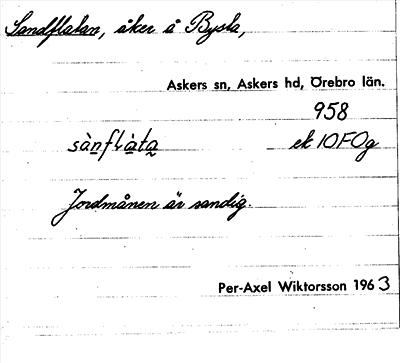 Sandflatan, åker å Bysta,
Askers sn, Askers hd, Örebro län.
958
sànflàta ek 10F0g
Jordmånen är sandig.
Per-Axel Wiktorsson 1963